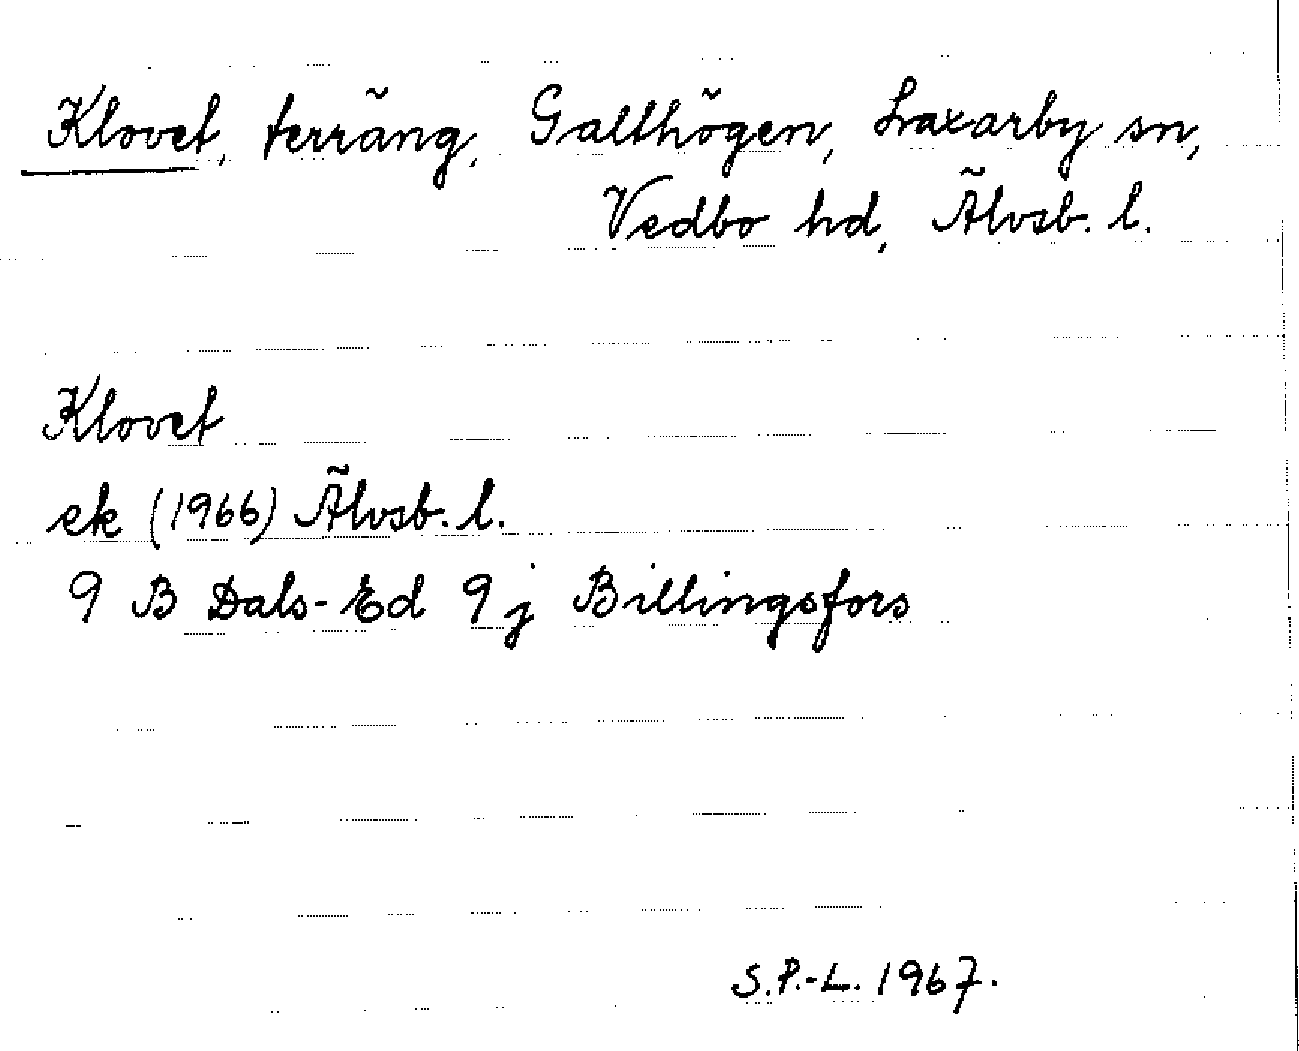 Klovet, terräng, Galthögen, Laxarby sn,
Vedbo hd, Älvsb. l.
Klovet
ek (1966) Älvsb. l.
9 B Dals-Ed 9 j Billingsfors
S.P.-L. 1967.